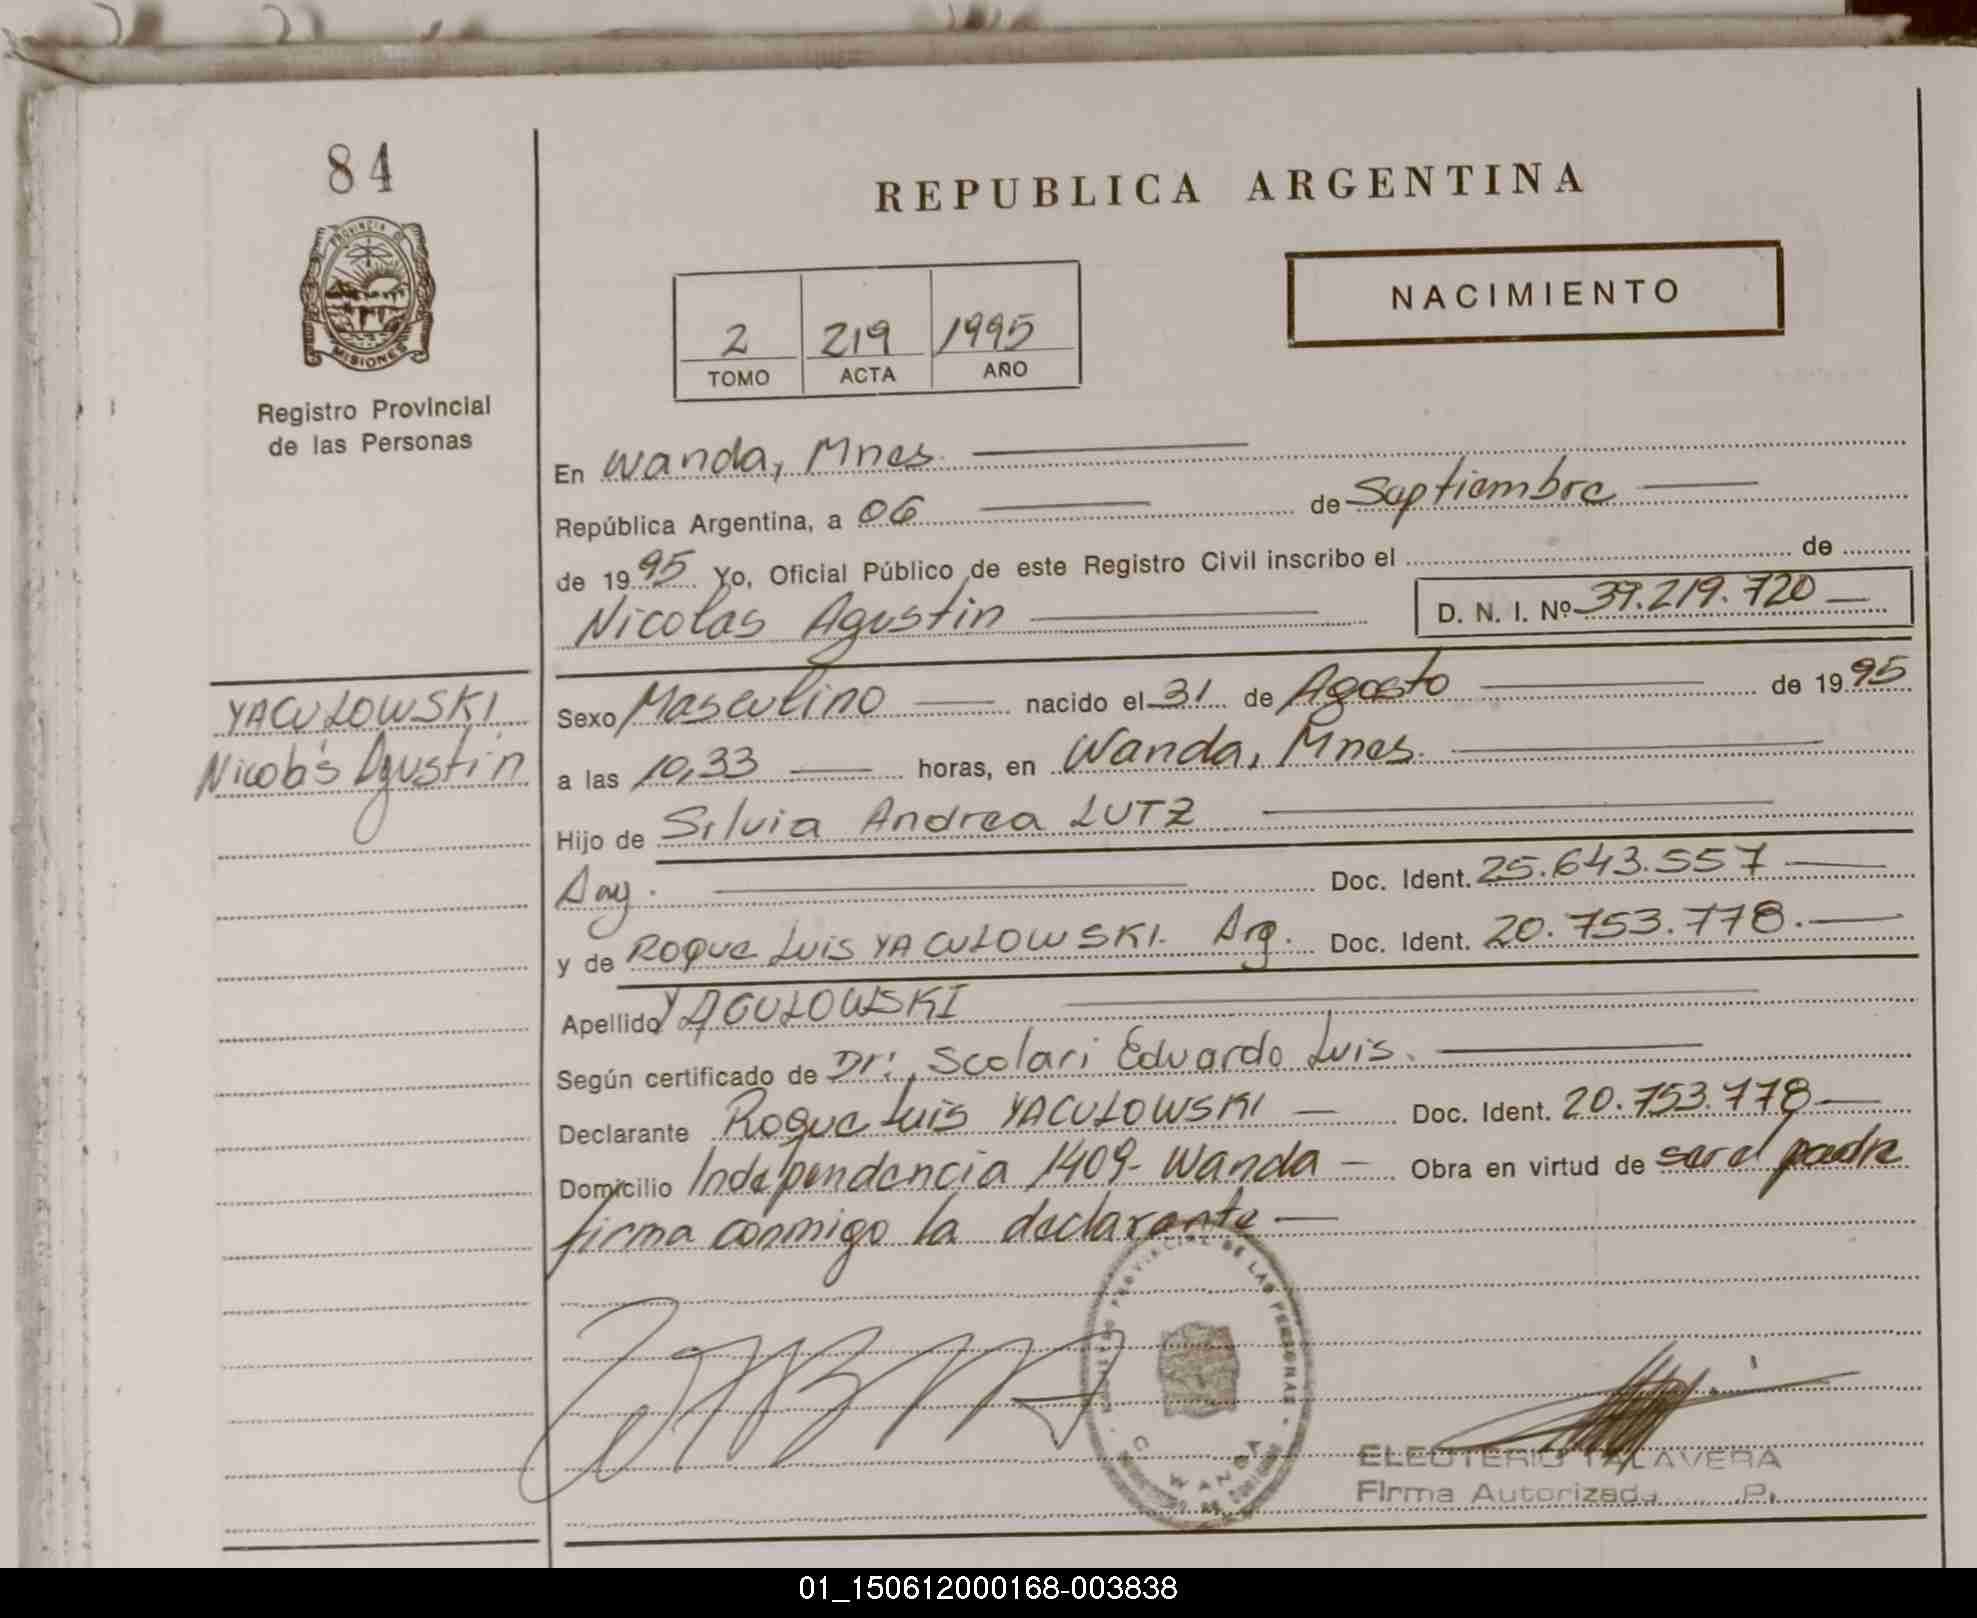 84
PROVINCIA DE
MISIONES
Registro Provincial
de las Personas
REPUBLICA ARGENTINA
NACIMIENTO
2 219 1995
TOMO ACTA AÑO
En Wanda, Mnes.
República Argentina, a 06 de Septiembre
de 1995 Yo, Oficial Público de este Registro Civil inscribo el de
Nicolas Agustin D. N. I. Nº 39.219.720
YACULOWSKI
Nicolás Agustin
Sexo Masculino nacido el 31 de Agosto de 1995
a las 10,33 horas, en Wanda, Mnes.
Hijo de Silvia Andrea LUTZ
Arg. Doc. Ident. 25.643.557
y de Roque Luis YACULOWSKI. Arg. Doc. Ident. 20.753.778.
Apellido YACULOWSKI
Según certificado de Dr: Scolari Eduardo Luis.
Declarante Roque Luis YACULOWSKI Doc. Ident. 20.753.778
Domicilio Independencia 1409- Wanda Obra en virtud de ser el padre
firma conmigo la declarante
PROVINCIAL DE LAS PERSONAS
WANDA
ELEUTERIO TALAVERA
Firma Autorizada
01_150612000168-003838